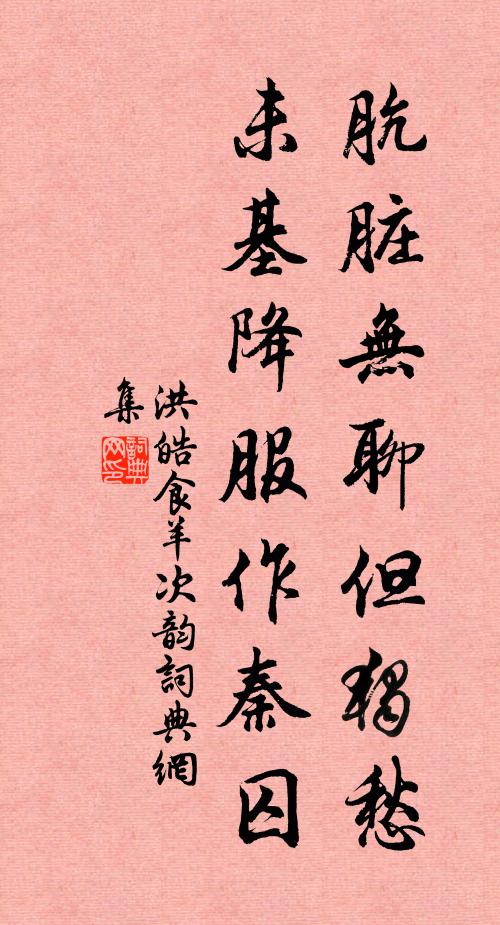 肮脏無聊但獨愁
未基降服作秦囚
洪皓食羊次韵詞典網
集
詞典网印